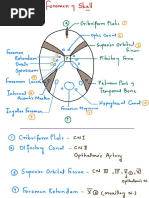 Foramen of Skull
A
Cribriform Plate ①
Optic Canal ②
Superior Orbital
Fissure
Foramen
Rotendum
Ovale
Spinosum
Pituitary Fossa
Foramen Lacerum
Internal
Acoustic Meatus
Petrous Part of
Temporal Bone
Jugular Foramen
Hypoglossal Canal
P
① Cribriform Plate - CN I
② Olfactory Canal - CN II
Opthalmic Artery
③ Superior Orbital Fissure - CN III, IV, V₁, VI
Opthalmic N.
④ Foramen Rotendum - V₂ (Maxillary N.)